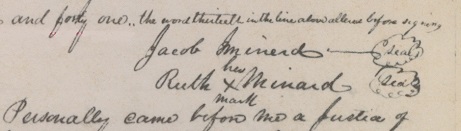 and forty one.. the word thirteeth in the line above altered before signing
Jacob Minerd seal
her
Ruth X Minard seal
mark
Personally came before me a justice of